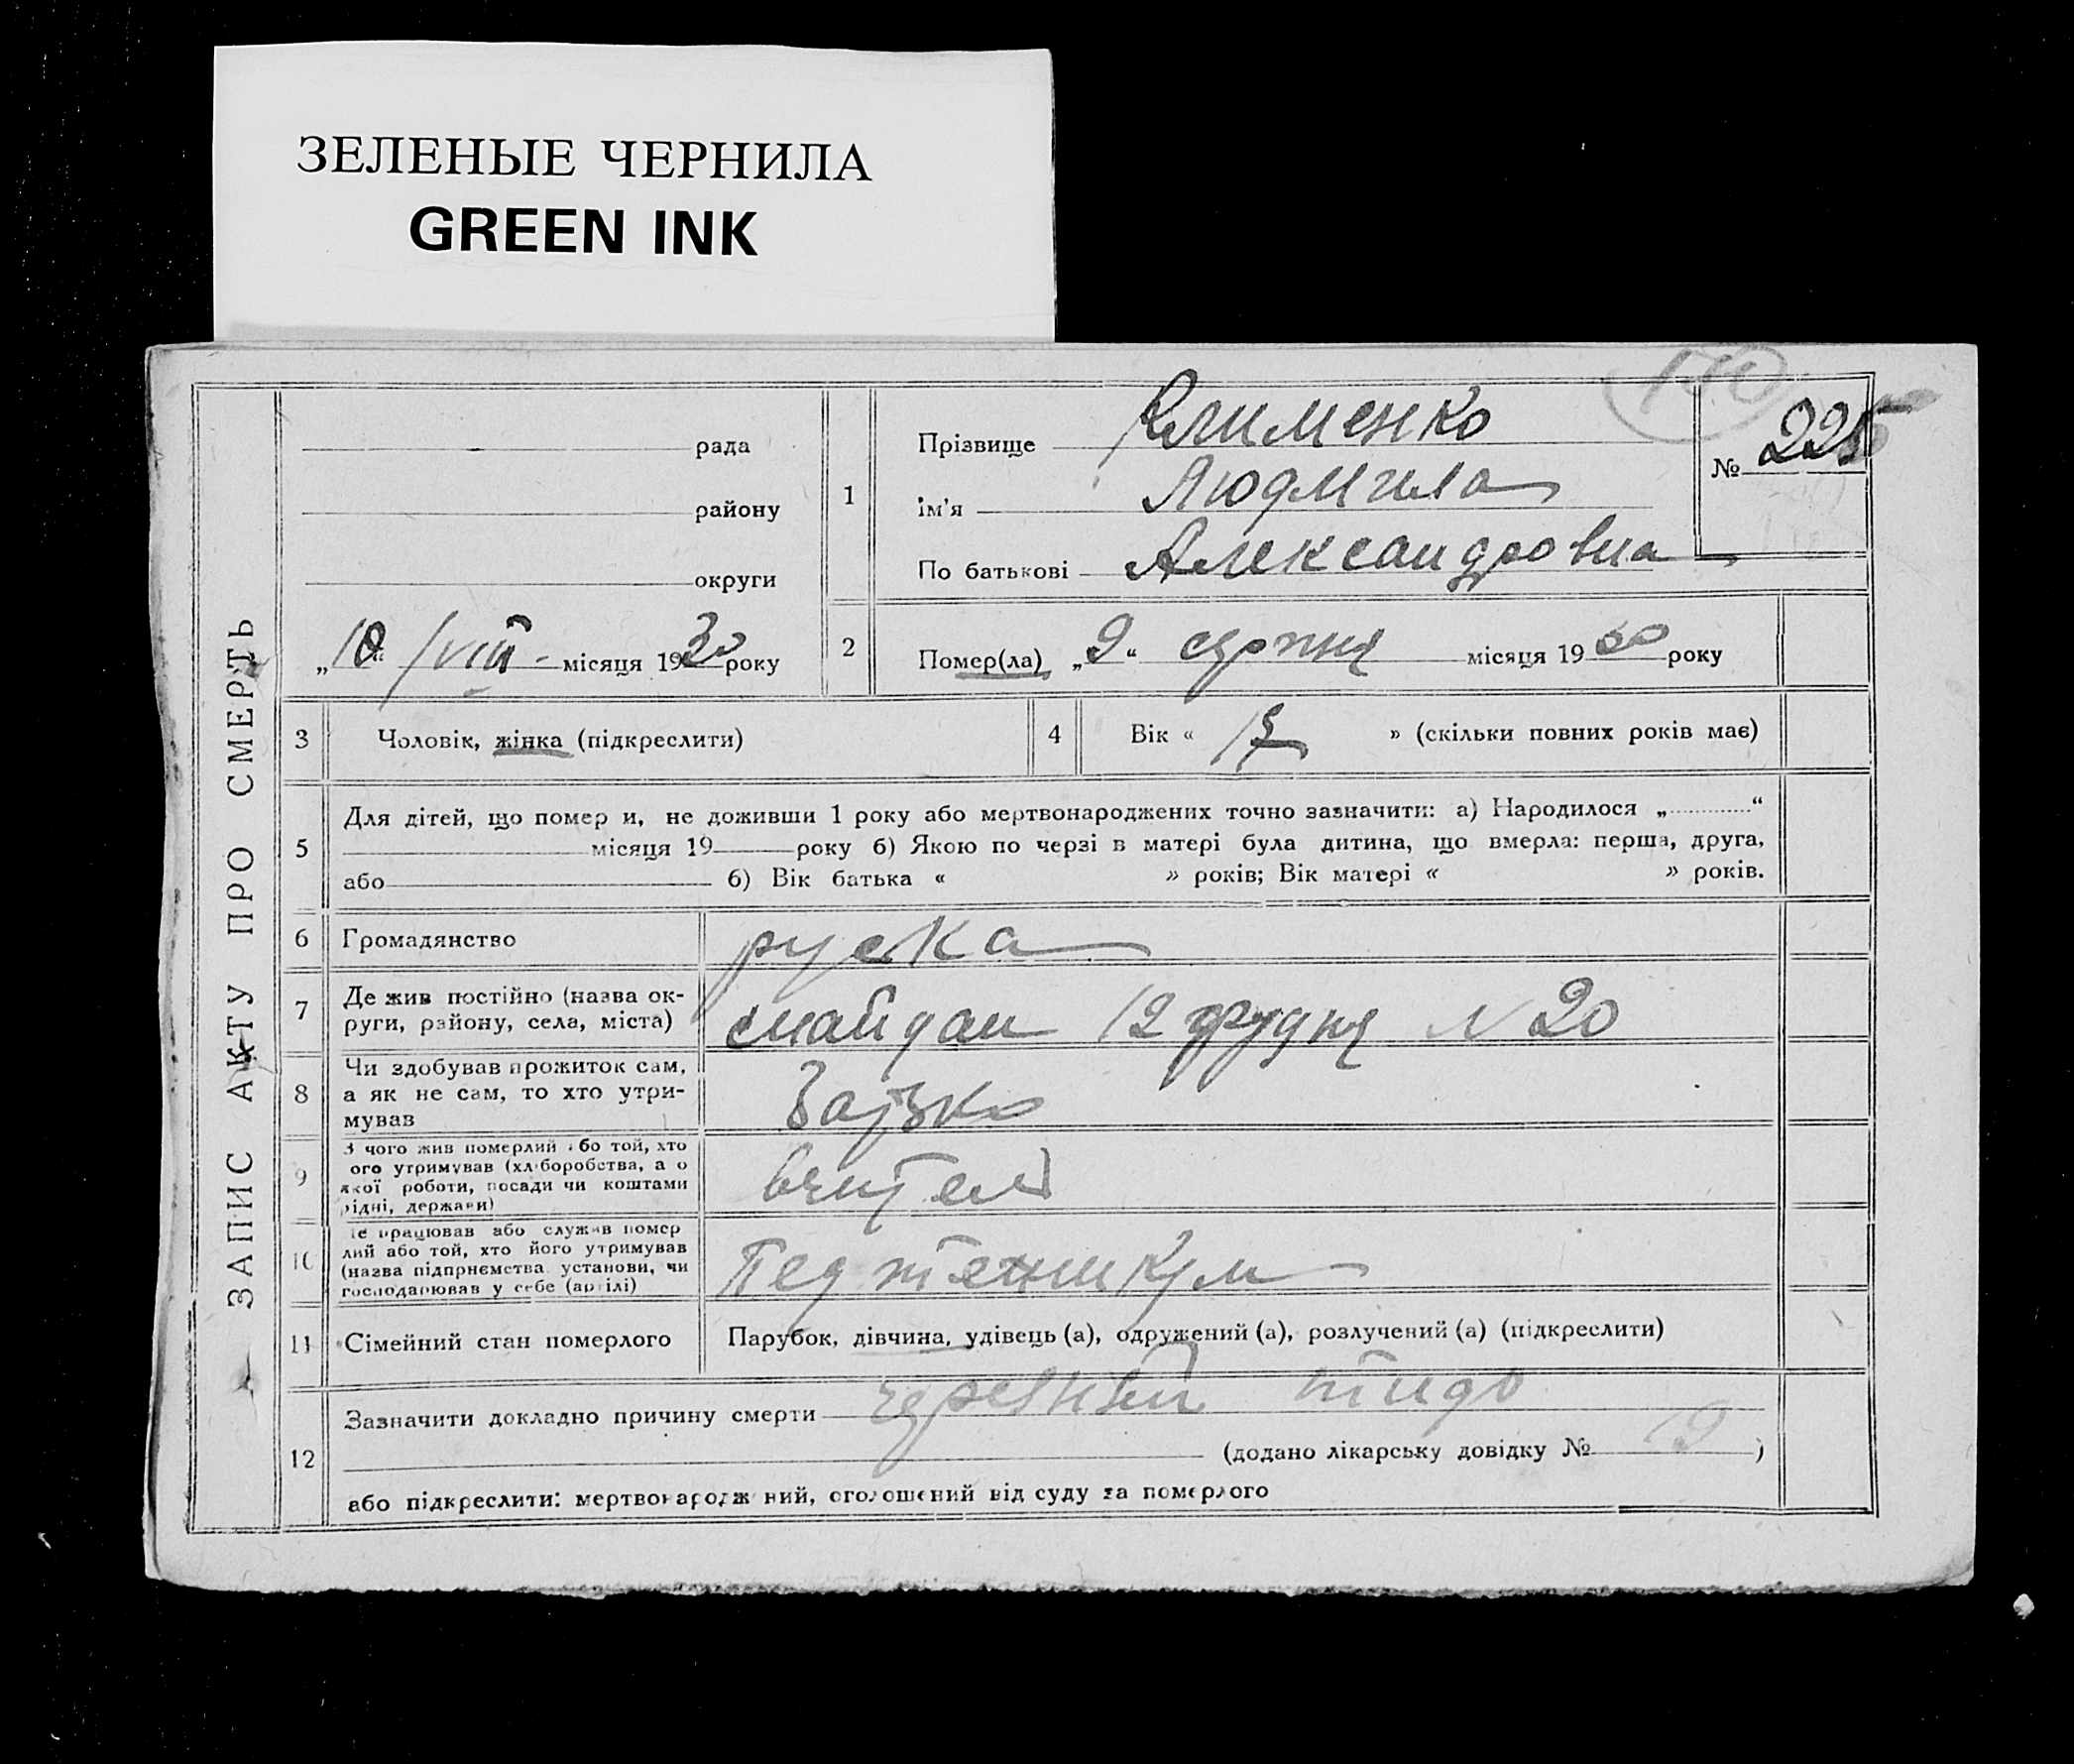 ЗЕЛЕНЫЕ ЧЕРНИЛА
GREEN INK
ЗАПИС АКТУ ПРО СМЕРТЬ
рада
району
округи
„10“ /VIII - місяця 1930 року
1
Прізвище Клименко
ім'я Людмила
По батькові Александровна
№ 225
2
Помер(ла) „9“ серпня місяця 1930 року
3
Чоловік, жінка (підкреслити)
4
Вік « » (скільки повних років має)
5
Для дітей, що помер и, не доживши 1 року або мертвонароджених точно зазначити: а) Народилося „ “
місяця 19 року б) Якою по черзі в матері була дитина, що вмерла: перша, друга,
або б) Вік батька « » років; Вік матері « » років.
6
Громадянство руска
7
Де жив постійно (назва ок-
руги, району, села, міста)
майдан 12 грудня № 20
8
Чи здобував прожиток сам,
а як не сам, то хто утри-
мував
9
З чого жив померлий або той, хто
ого утримував (хліборобства, а о
якої роботи, посади чи коштами
рідні, держави)
вчител
10
де працював або служив помер
лий або той, хто його утримував
(назва підприємства установи, чи
господарював у себе (артілі)
Пед техникум
11
Сімейний стан померлого
Парубок, дівчина, удівець (а), одружений (а), розлучений (а) (підкреслити)
12
Зазначити докладно причину смерти черевний тифо
(додано лікарську довідку № )
або підкреслити: мертвонароджений, оголошений від суду за померлого